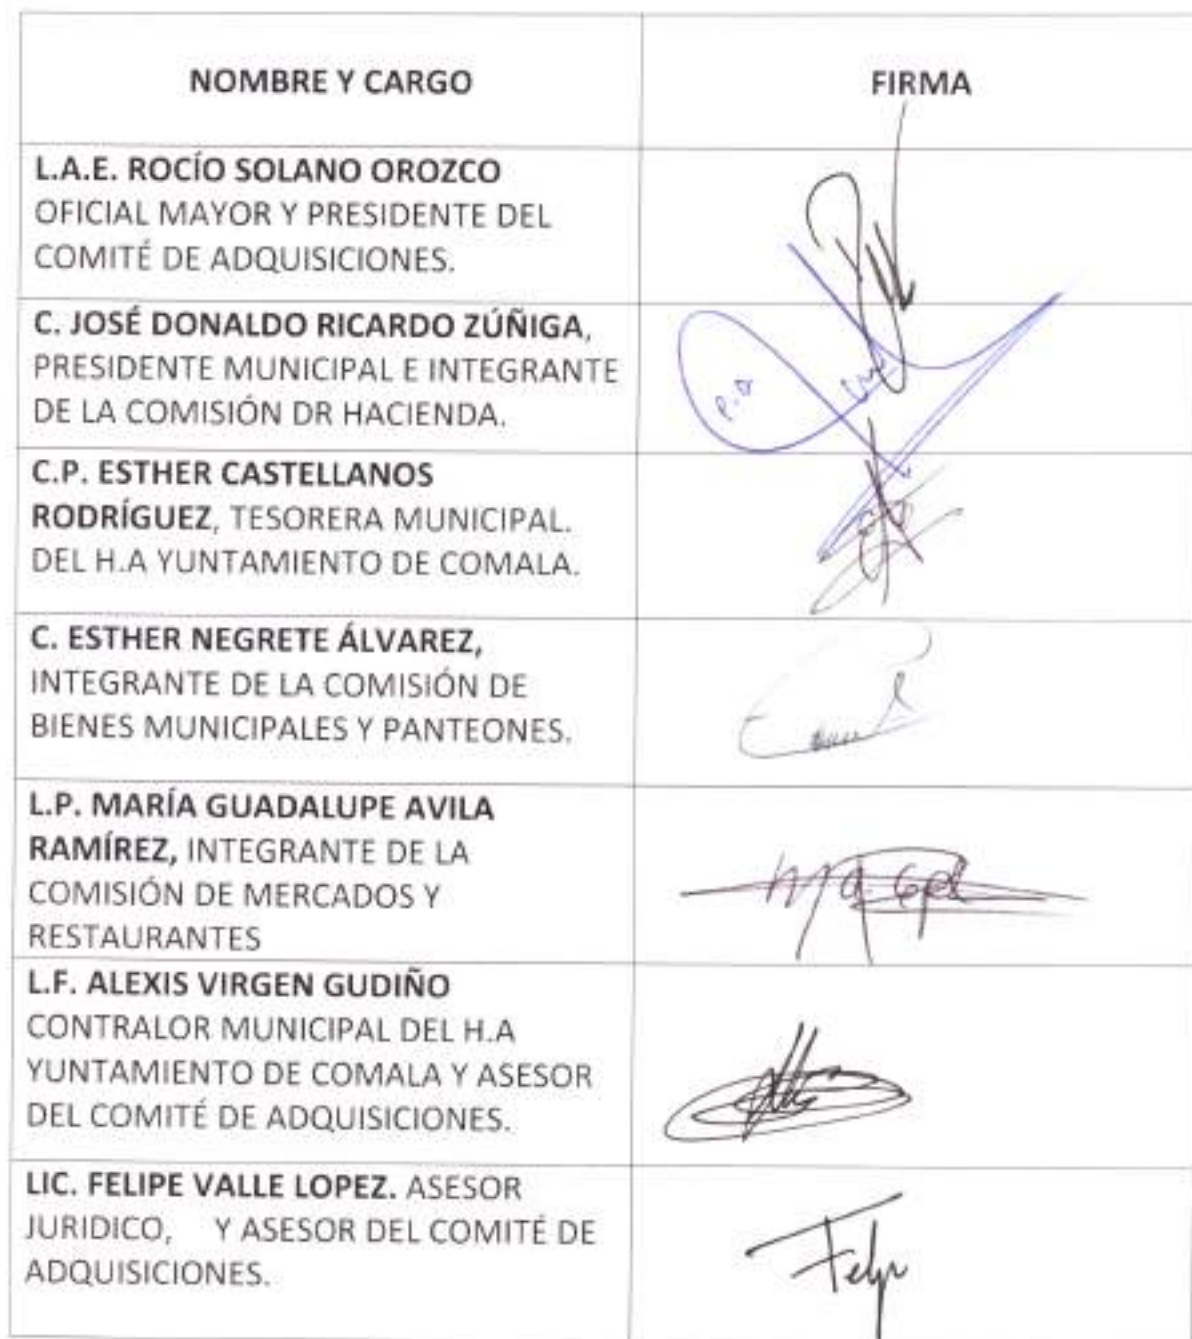 NOMBRE Y CARGO
FIRMA
L.A.E. ROCÍO SOLANO OROZCO
OFICIAL MAYOR Y PRESIDENTE DEL
COMITÉ DE ADQUISICIONES.
C. JOSÉ DONALDO RICARDO ZÚÑIGA,
PRESIDENTE MUNICIPAL E INTEGRANTE
DE LA COMISIÓN DR HACIENDA.
P.A
C.P. ESTHER CASTELLANOS
RODRÍGUEZ, TESORERA MUNICIPAL.
DEL H.A YUNTAMIENTO DE COMALA.
C. ESTHER NEGRETE ÁLVAREZ,
INTEGRANTE DE LA COMISIÓN DE
BIENES MUNICIPALES Y PANTEONES.
L.P. MARÍA GUADALUPE AVILA
RAMÍREZ, INTEGRANTE DE LA
COMISIÓN DE MERCADOS Y
RESTAURANTES
Ma. Gpe
L.F. ALEXIS VIRGEN GUDIÑO
CONTRALOR MUNICIPAL DEL H.A
YUNTAMIENTO DE COMALA Y ASESOR
DEL COMITÉ DE ADQUISICIONES.
LIC. FELIPE VALLE LOPEZ. ASESOR
JURIDICO, Y ASESOR DEL COMITÉ DE
ADQUISICIONES.